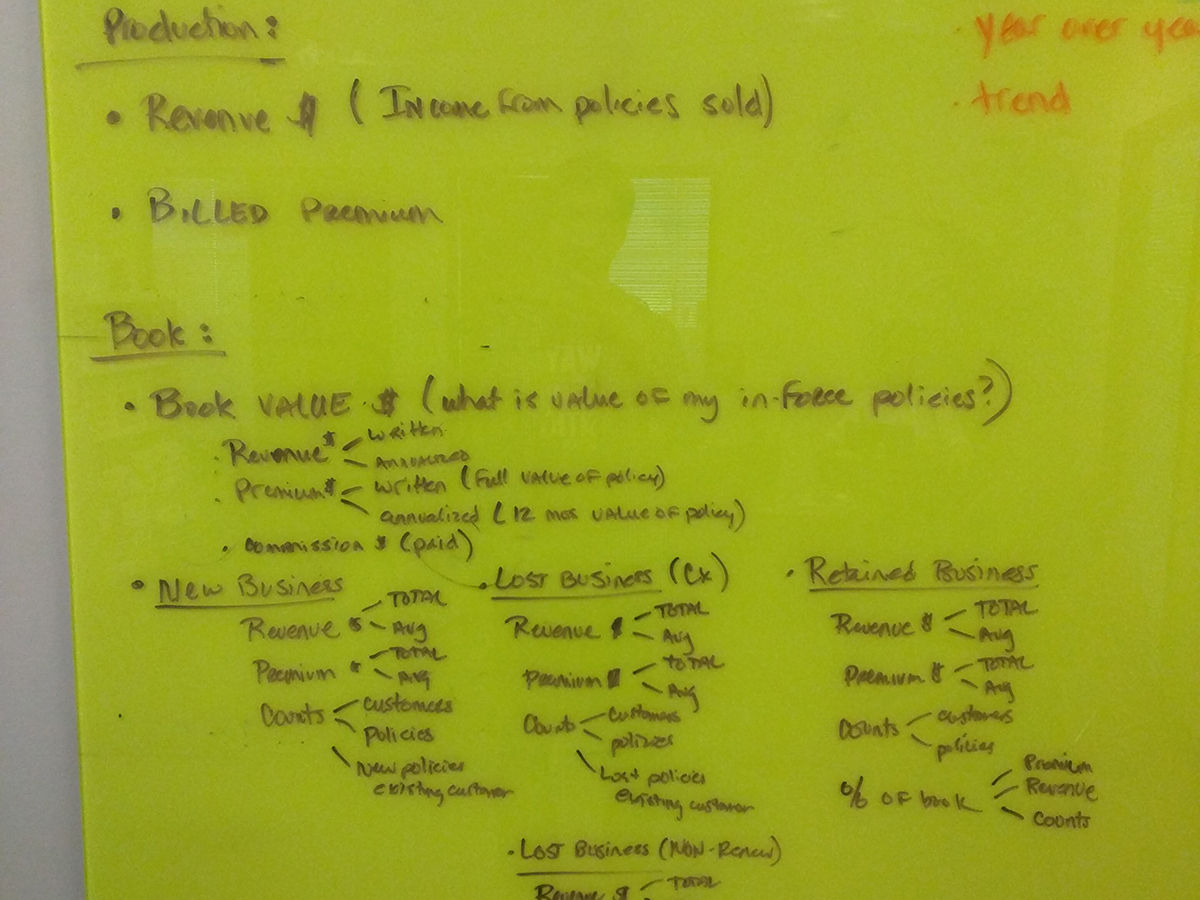 Production:
• Year over
• trend
• Revenue $ (Income from policies sold)
• BILLED Premium
Book:
• Book VALUE $ (what is value of my in-force policies?)
• Revenue $ written
ANNUALIZED
• Premium $ written (Full VALUE OF policy)
annualized (12 mos VALUE of policy)
• Commission $ (paid)
• New Business
Revenue $ TOTAL
Avg
Premium $ TOTAL
Avg
Counts customers
Policies
New policies
existing customer
• LOST BUSINESS (Cx)
Revenue $ TOTAL
Avg
Premium $ TOTAL
Avg
Counts customers
policies
Lost policies
existing customer
• LOST Business (NON-Renew)
Revenue $ TOTAL
• Retained Business
Revenue $ TOTAL
Avg
Premium $ TOTAL
Avg
Counts customers
policies
% OF book Premium
Revenue
Counts